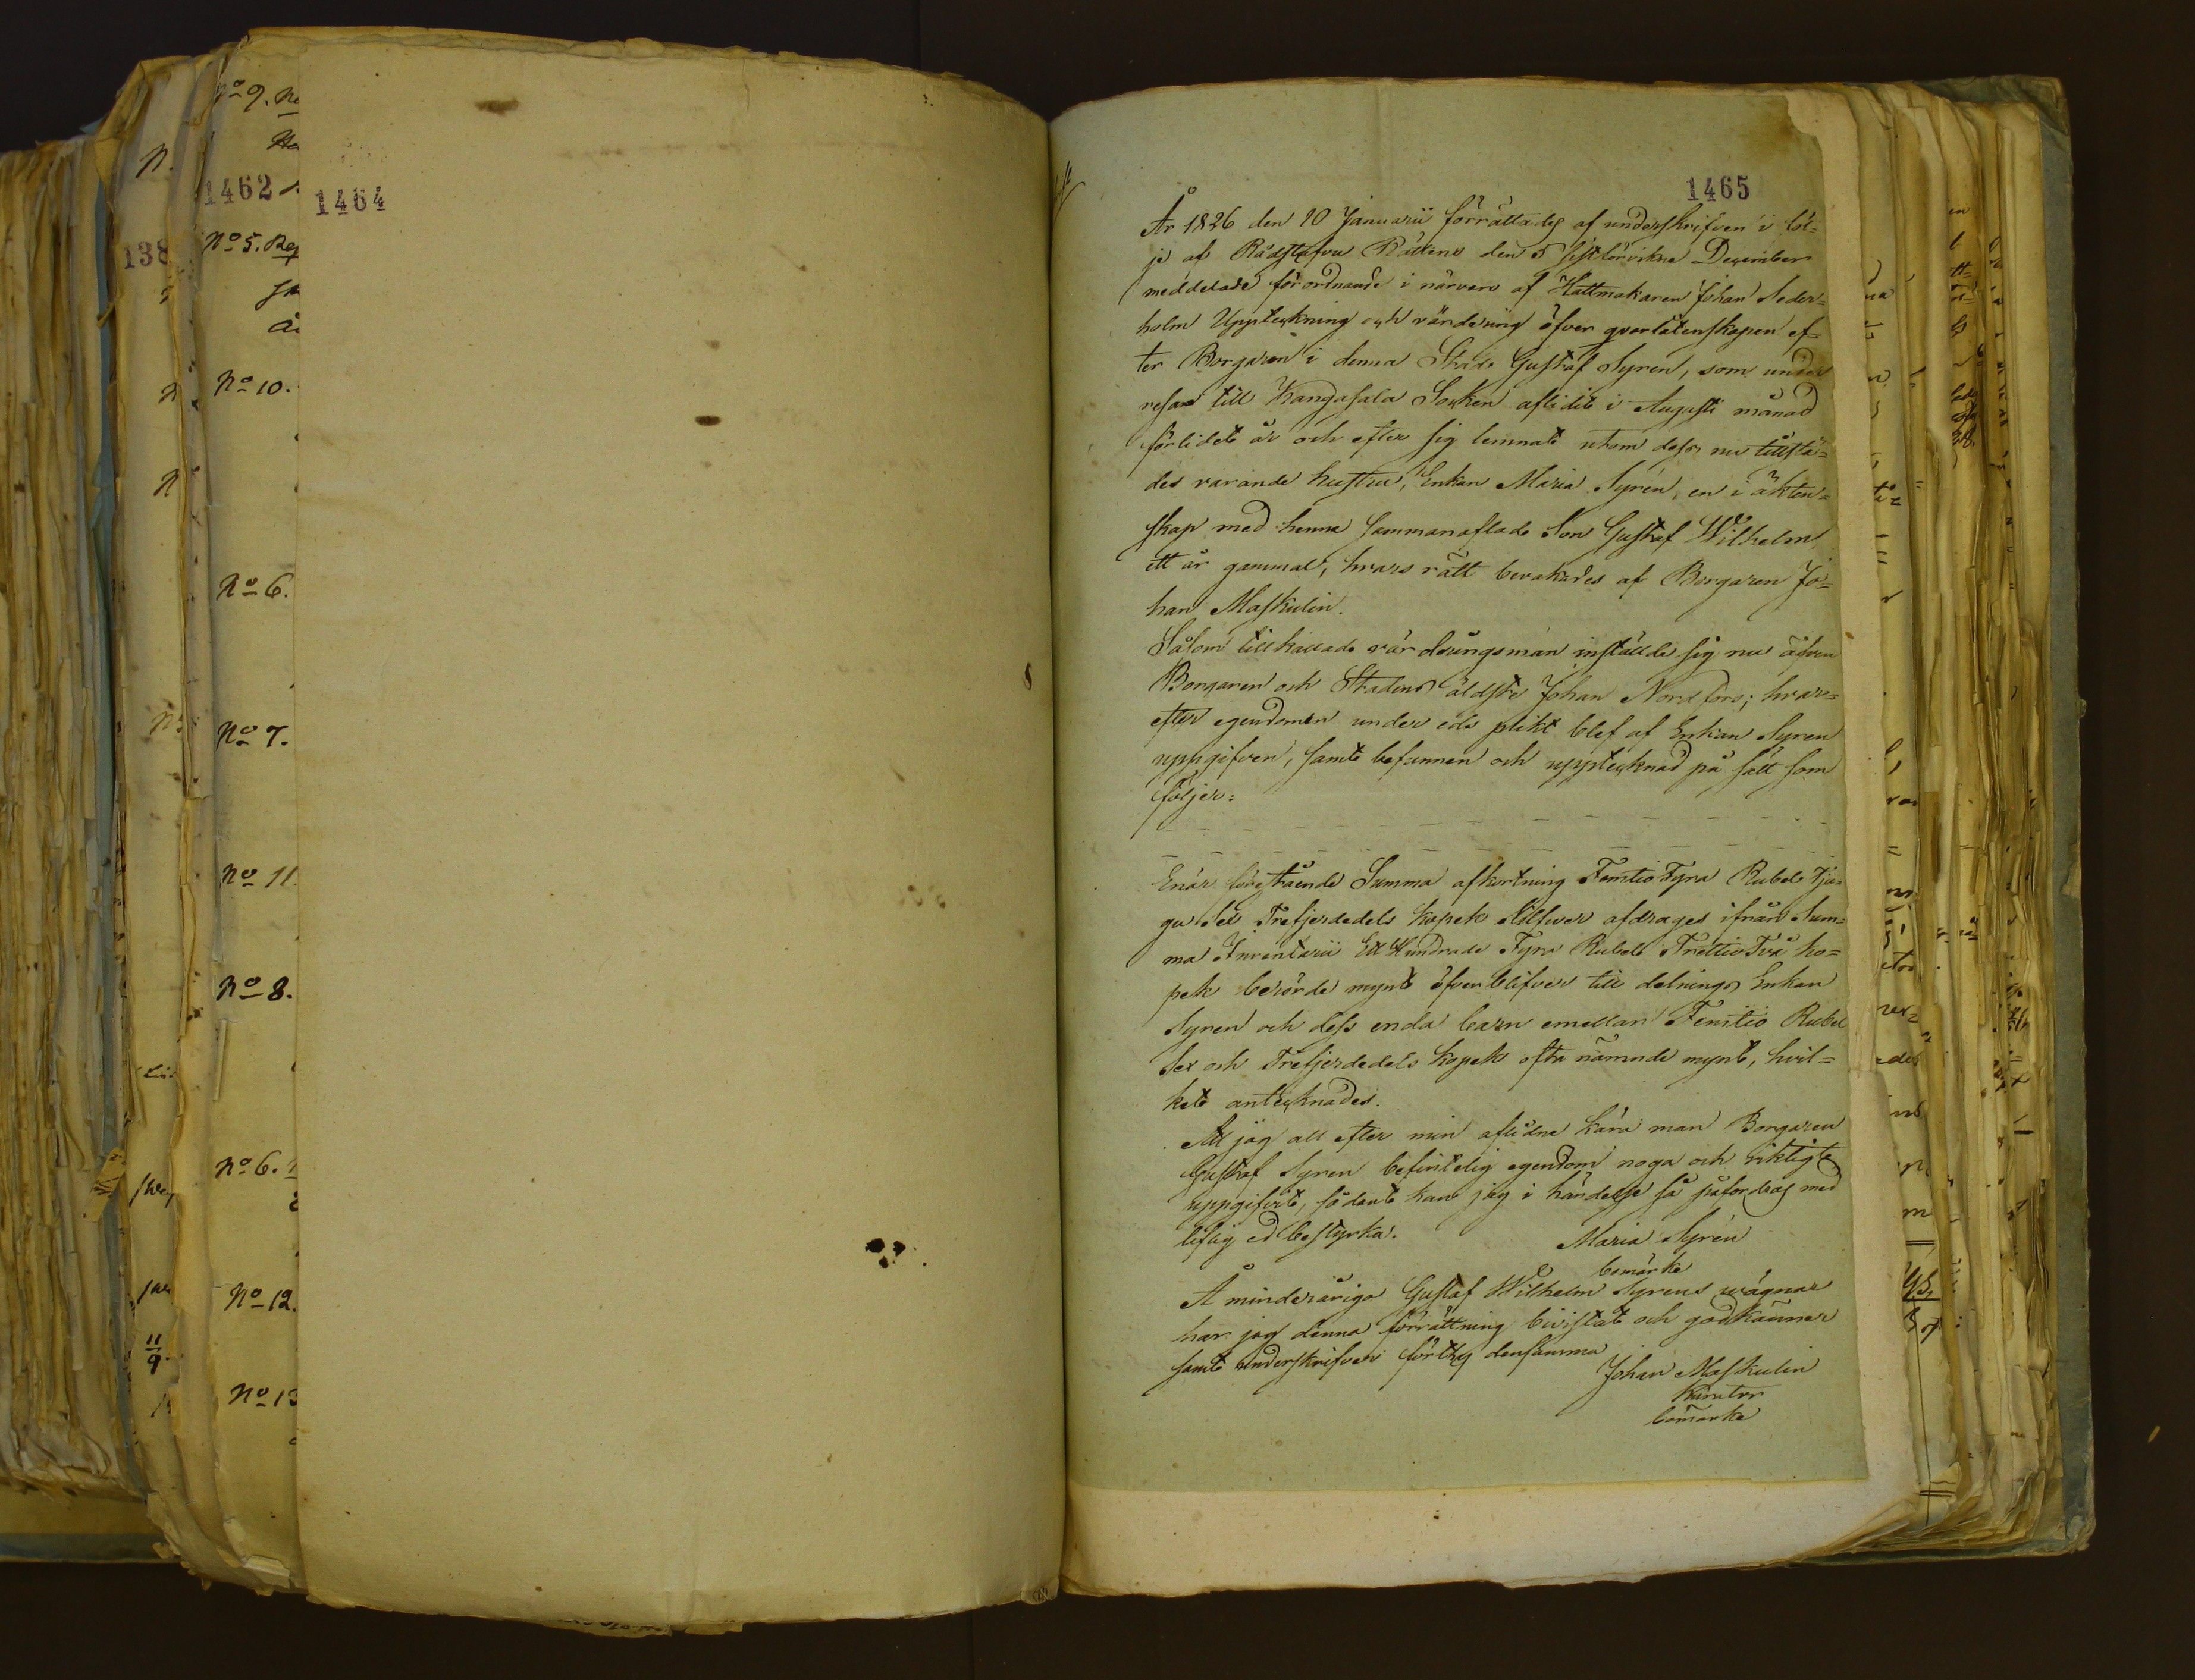 1464
1462
138
No 9.
No 5.
No 10.
No 6.
No 7.
No 11.
No 8.
No 6.
No 12.
No 13
1465
År 1826 den 10 Januarii förrättades af underskrifven i föl=
je af Rådstufvu Rättens den 5 sistförvikne December
meddelade förordnande i närvaro af Hattmakaren Johan Seder=
holm Uppteckning och värdering öfver qvarlåtenskapen ef=
ter Borgaren i denna Stad Gustaf Syrén, som under
resan till Kangasala Socken aflidit i Augusti månad
förlidet år och efter sig lemnat utom dess nu tillstä=
des varande hustru, Enkan Maria Syrén, en i äkten=
skap med henne sammanaflade Son Gustaf Wilhelm
ett år gammal, hvars rätt bevakades af Borgaren Jo=
han Maskulin.
Såsom tillkallade värderingsman inställde sig nu äfven
Borgaren och Stadens äldste Johan Nordfors; hvar=
efter egendomen under eds plikt blef af Enkan Syren
uppgifven, samt befunnen och upptecknad på sätt som
följer:
Enär förestående Summa afkortning Femtio Fyra Rubel Tju=
gu Sex Trefjerdedels kopek Silfver afdrages ifrån Sum=
ma Inventarii Ett Hundrade Fyra Rubel Trettio Två ko=
pek berörde mynt öfverblifver till delnings Enkan
Syren och dess enda barn emellan Femtio Rubel
Sex och Trefjerdedels kopek ofta nämnde mynt, hvil=
ket antecknades.
Att jag all efter min aflidne kära man Borgaren
Gustaf Syren befintelig egendom noga och riktigt
uppgifvit, sådant kan jag i händelse så påfordras med
liflig ed bestyrka.
Maria Syrén
bomärke
Å minderåriga Gustaf Wilhelm Syrens wägnar
har jag denna förrättning bivistat och godkänner
samt underskrifver förthy densamma
Johan Maskulin
Kurator
bomärke